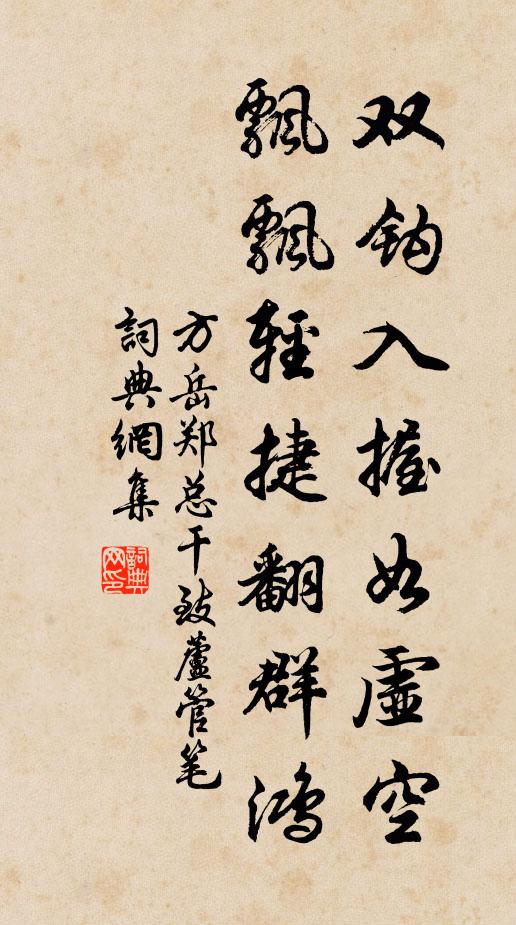 双钩入握如虚空
飘飘轻捷翻群鸿
方岳郑总干致蘆管笔
詞典網集
詞典网印